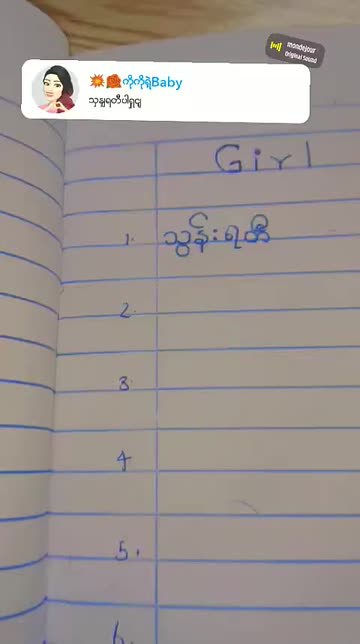 mondejour
Original Sound
💥🌹ကိုကိုရဲ့Baby
သုန္ဏရတီပါရှငျ
Girl
1. သွန်းရတီ
2.
3
4
5.
6.